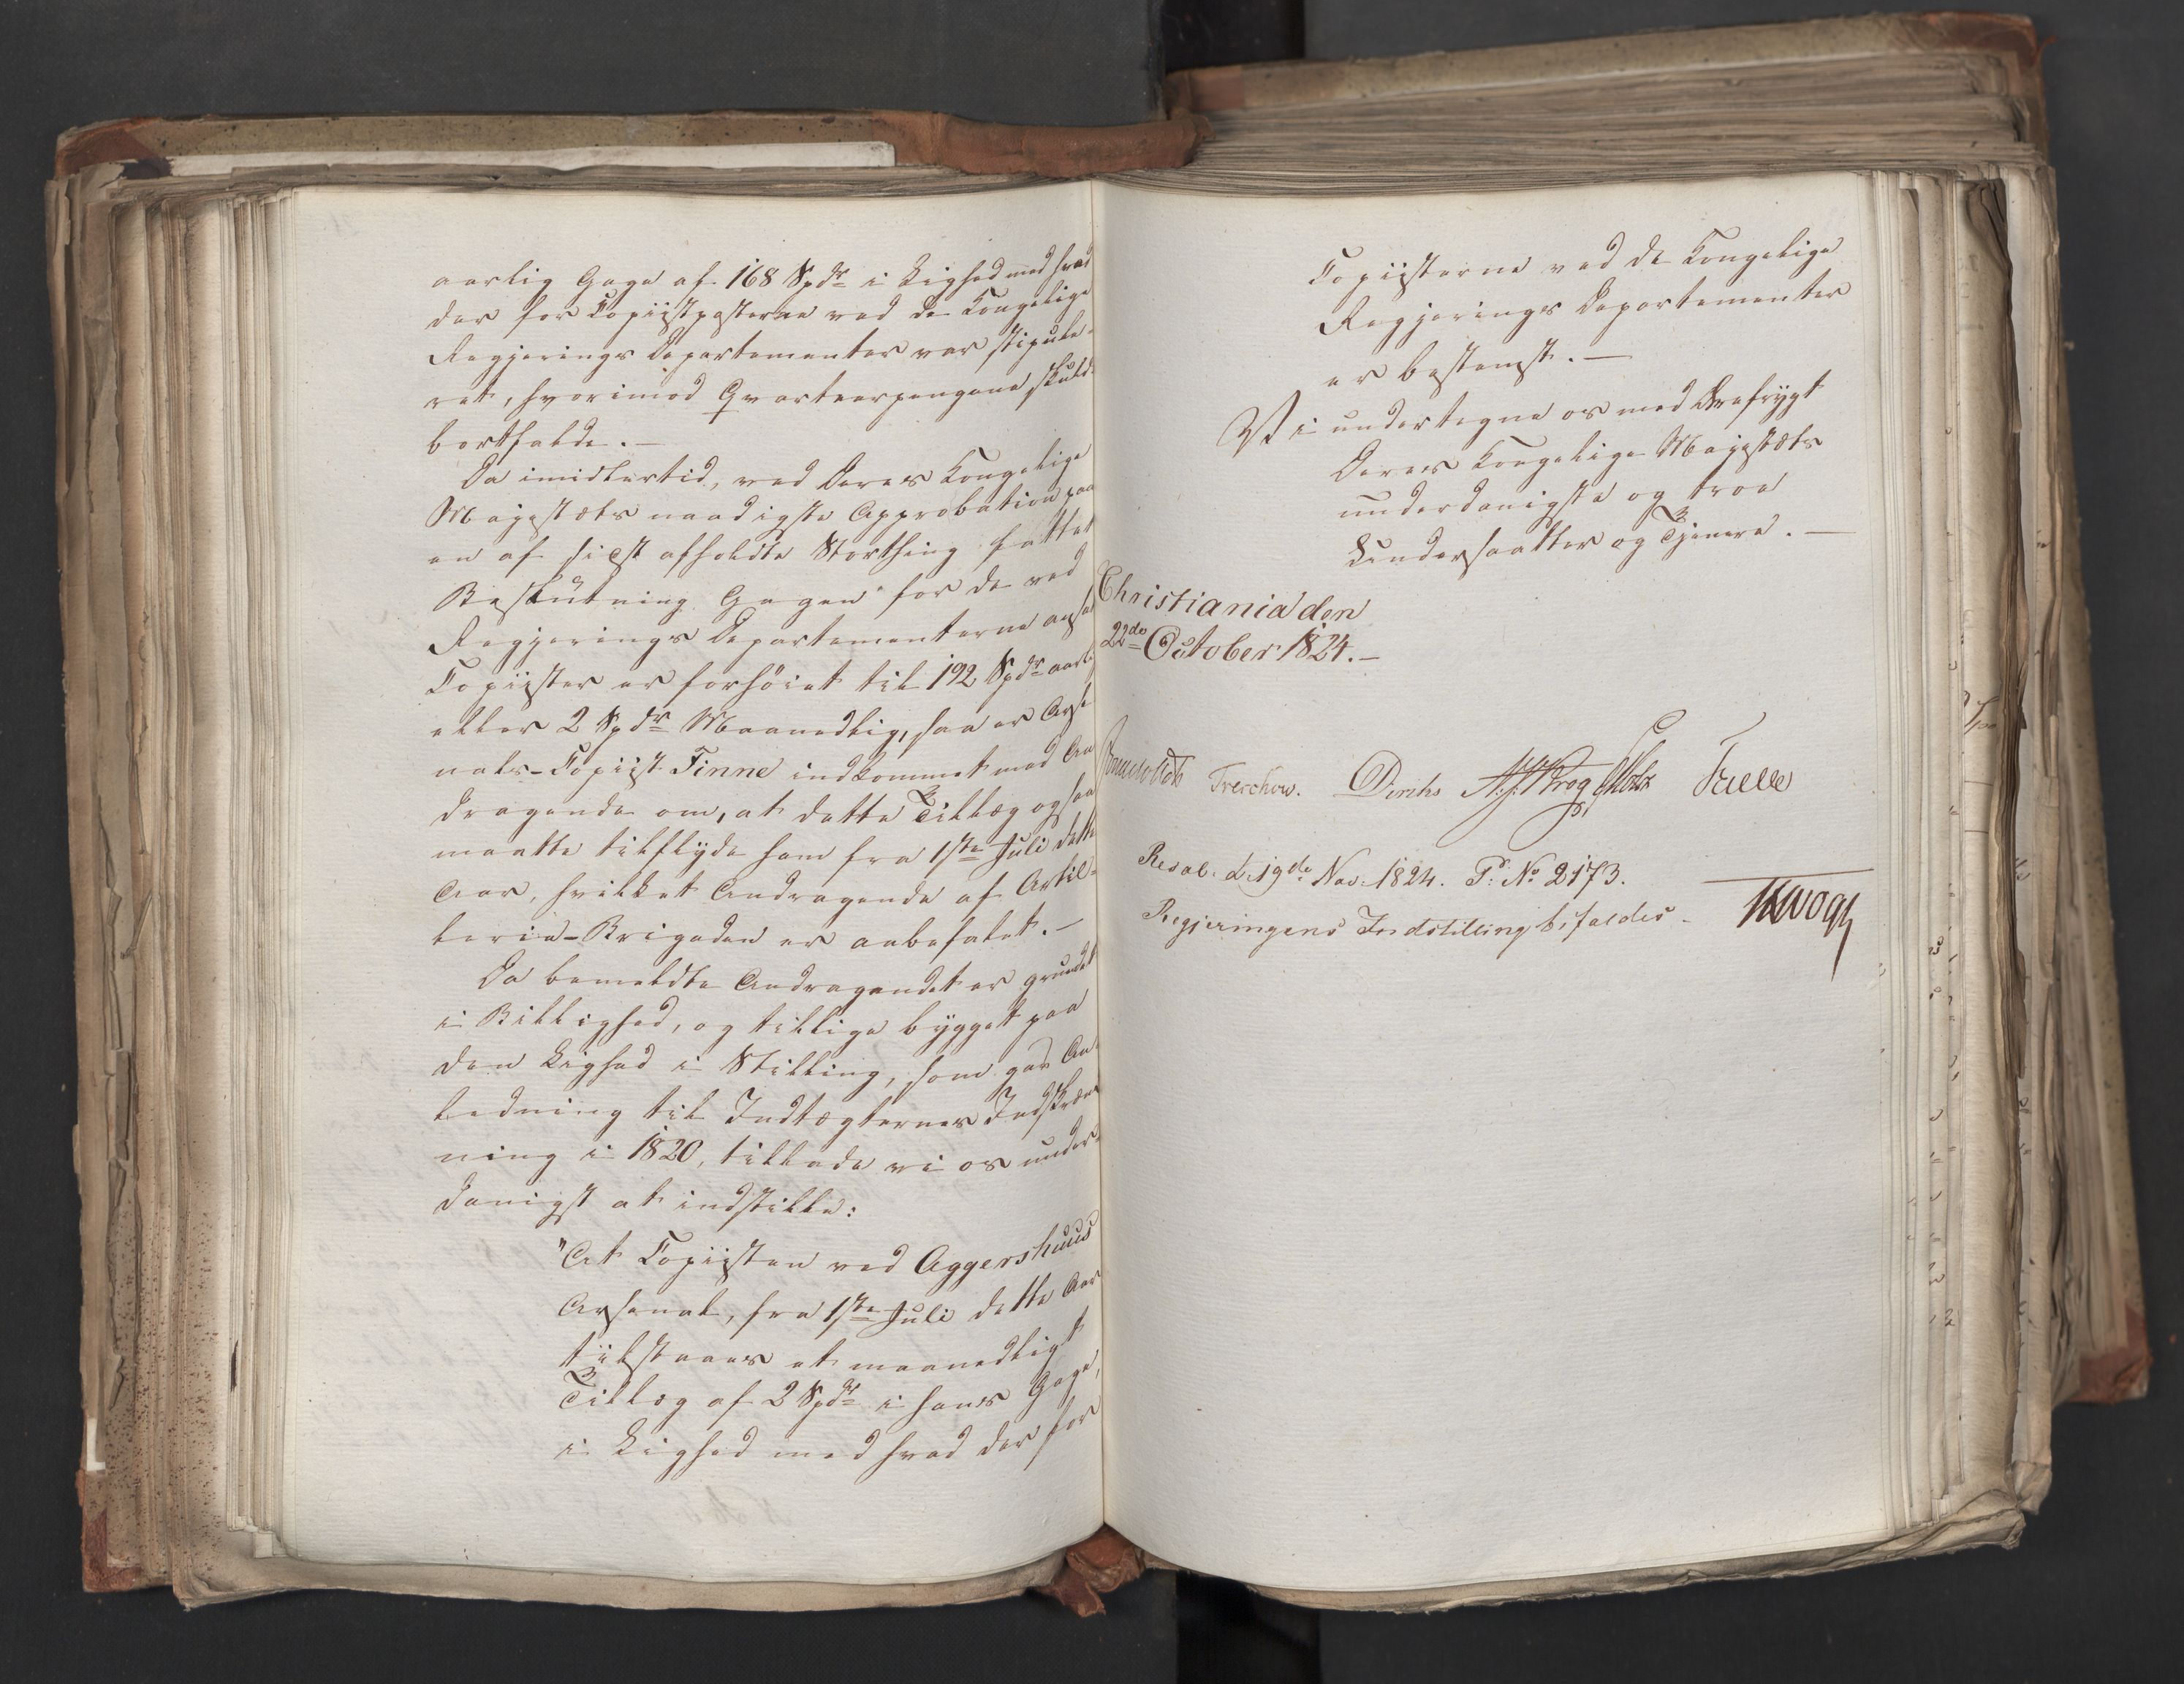 aarlig Gage af 168 Spdr i Lighed med hvad
der for Copiistposterne ved de Kongelige
Regjerings Departementer var stipule-
ret, hvorimod Qvarteerpengene skulde
bortfalde. —
Da imidlertid, ved Deres Kongelige
Majestæts naadigste Approbation paa
en af sidst afholdte Storthing fattet
Beslutning Gagen for de ved
Regjerings Departementerne ansat
Copiister er forhöiet til 192 Spdr aarlig
eller 2 Spdr Maanedlig, saa er Arse
nals-Copiist Finne indkommet med An
dragende om, at dette Tillæg ogsaa
maatte tilflyde ham fra 1ste Juli dette
Aar, hvilket Andragende af Artil-
lerie-Brigaden er anbefalet. —
Da bemeldte Andragendet er grundet
i Billighed, og tillige bygget paa
den Lighed i Stilling, som gav An-
ledning til Indtægternes Indskrænk
ning i 1820, tillade vi os under-
danigst at indstille:
"At Copiisten ved Aggershuus
Arsenal, fra 1ste Juli dette Aar
tilstaaes et maanedligt
Tillæg af 2 Spdr i hans Gage,
i Lighed med hvad der for
Copiisterne ved de Kongelige
Regjerings Departementer
er bestemt. —
Vi undertegne os med Ærefrygt
Deres Kongelige Majestæts
underdanigste og troe
Undersaatter og Tjenere. —
Christiania den
22de October 1824. —
Treschow. Diriks Krog Falbe
Resol. d. 19de Nov. 1824. P: No 2173.
Regjeringens Indstilling bifaldes —
Vogt